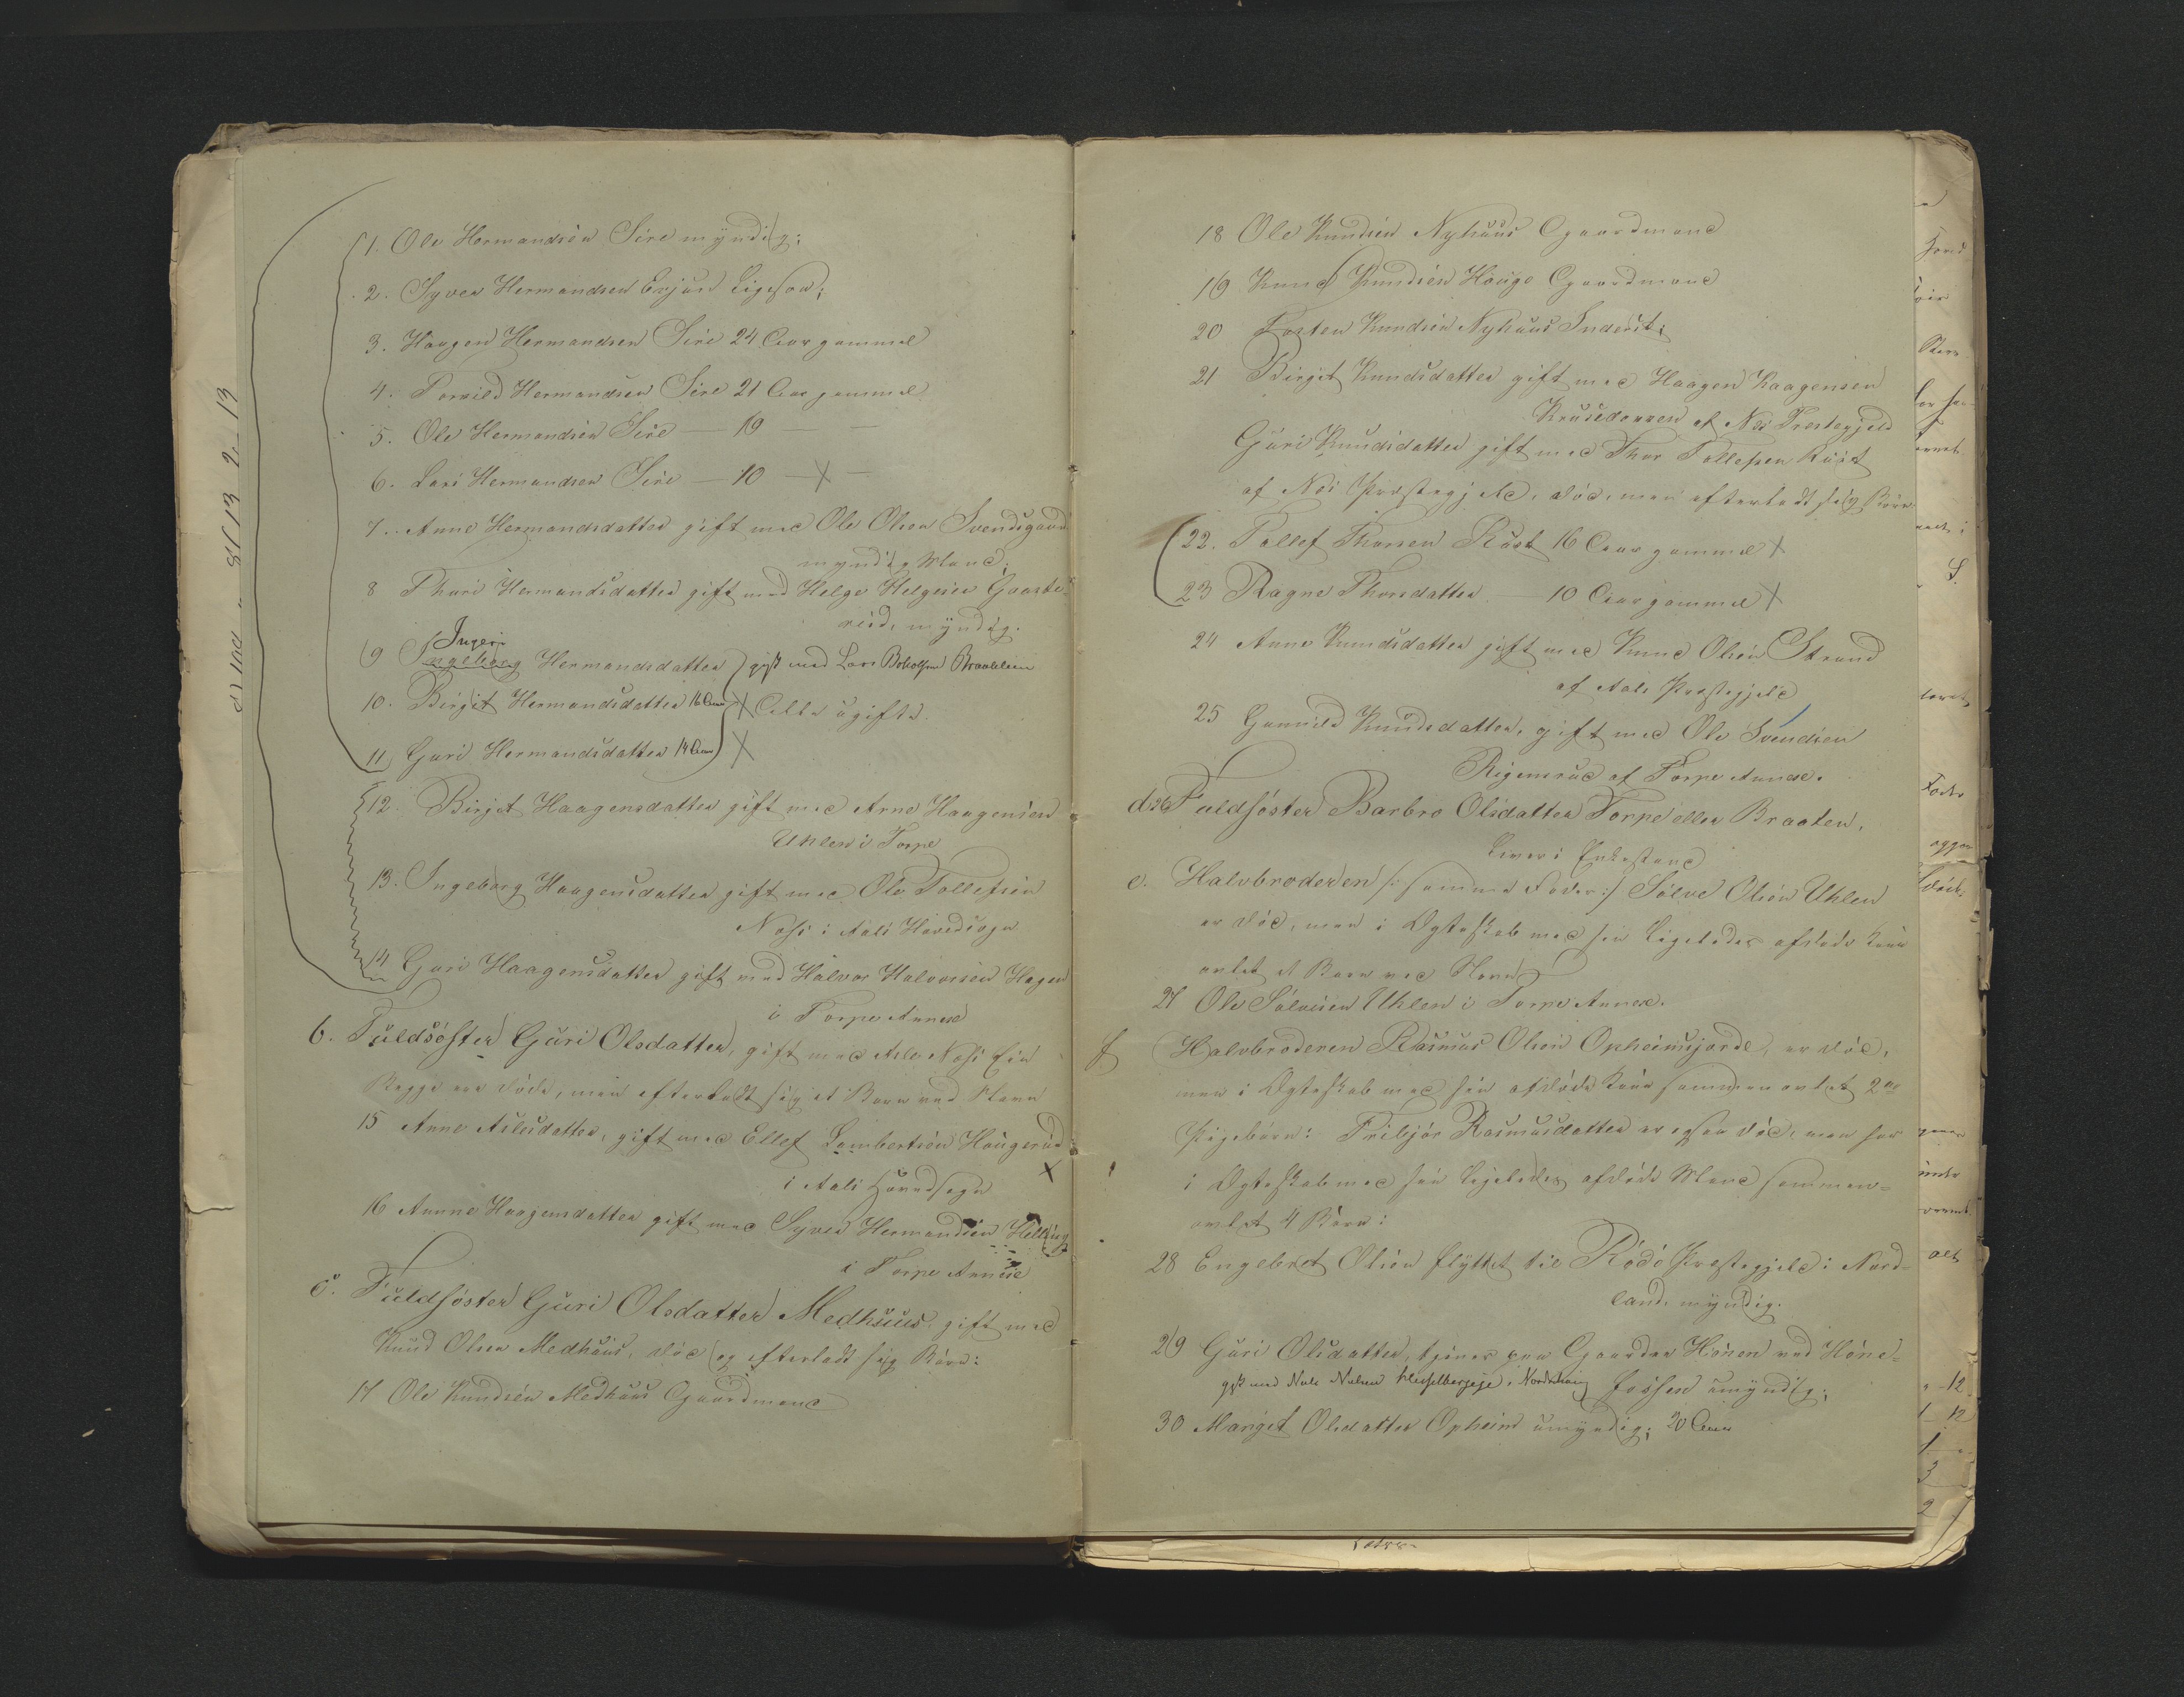 1. Ole Hermandsen Sire myndig;
2. Syver Hermandsen ligesaa;
3. Haagen Hermandsen Sire 24 Aar gammel
4. Torvild Hermandsen Sire 21 Aar gammel
5. Ole Hermandsen Sire — 19 — —
6. Lars Hermandsen Sire — 10 — X —
7. Anne Hermandsdatter gift med Ole Olsen Svendsgaard
myndig Mand;
8 Thuri Hermandsdatter gift med Helge Helgesen
myndig.
Ingeri
9 Ingeborg Hermandsdatter gift med Lars Braatelien
10. Birgit Hermandsdatter 16 Aar X Alle ugifte.
11 Guri Hermandsdatter 14 Aar X
12. Birgit Haagensdatter gift med Arne Haagensen
Uhlen i Torpe
13. Ingeborg Haagensdatter gift med Ole Tollefsen
Nøss i Aals Hovedsogn
14 Guri Haagensdatter gift med Halvor Halvorsen Hagen
i Torpe Annex
b. Fuldsöster Guri Olsdatter, gift med Asle
Begge ere döde, men efterladt sig et Barn ved Navn
15 Anne Aslesdatter, gift med Ellef Lambertsen Haugerud
i Aals Hovedsogn X
16 Annne Haagensdatter gift med Syver Hermandsen
i Torpe Annex
c. Fuldsöster Guri Olsdatter Medhuus, gift med
Knud Olsen Medhuus, död og efterladt sig Börn:
17 Ole Knudsen Medhuus Gaardmand
18 Ole Knudsen Nyhuus Gaardmand
19 Knud Knudsen Hauge Gaardmand
20 Torsten Knudsen Nyhuus Inderst;
21 Birgit Knudsdatter gift med Haagen Haagensen
af Næs Prestegjeld
Guri Knudsdatter gift med Thor Tollefsen Rust
af Næs Præstegjeld, död, men efterladt sig Börn
22. Tollef Thorsen Rust 16 Aar gammel X
23 Ragne Thorsdatter — 10 Aar gammel X
24 Anne Knudsdatter gift med Knud Olsen Strand
af Aals Præstegjeld
25 Gunnild Knudsdatter, gift med Ole Svendsen
af Torpe Annex.
d. 26 Fuldsöster Barbro Olsdatter Torpe eller Braaten,
Lever i Enkestand
e. Halvbroderen /: samme Fader :/ Sölve Olsen Uhlen
er död, men i Ægteskab med sin ligeledes afdöde Kone
avlet et Barn ved Navn
27 Ole Sölvesen Uhlen i Torpe Annex.
f Halvbroderen Rasmus Olsen Opheimsjorde, er död,
men i Ægteskab med sin afdöde Kone sammen avlet 2de
Pigebörn: Tribjör Rasmusdatter er ogsaa död, men har
i Ægteskab med sin ligeledes afdöde Mand sammen=
avlet 4 Börn:
28 Engebret Olsen flyttet til Rödö Præstegjeld i Nord=
land, myndig.
29 Guri Olsdatter, tjener paa Gaarden Hönen ved Höne=
gift med Niels Nielsen i Norderhaug fossen umyndig;
30 Margit Olsdatter Opheim umyndig; 20 Aar